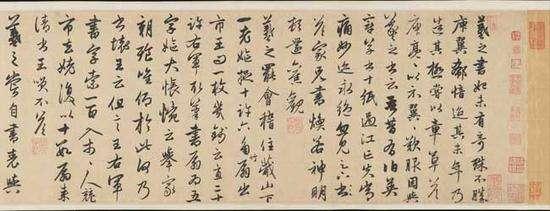 羲之書初未有奇殊不勝
庾翼郗愔迨其末年乃
造其極嘗以章草答
庾亮亮以示翼翼歎服因與
羲之書云吾昔有伯英
章草書十紙過江亡失常
痛妙迹永絕忽見足下
答家兄書煥若神明
頓還舊觀
羲之罷會稽住蕺山下
一老嫗捉十許六角扇出
市王問一枚幾錢云直二十
許右軍取筆書扇扇為五
字嫗大悵惋云舉家
朝飡唯仰於此何乃
書壞王云但言王右軍
書字索一百入市人競
市之姥復以十數扇來
請書王笑不答
羲之嘗自書表與